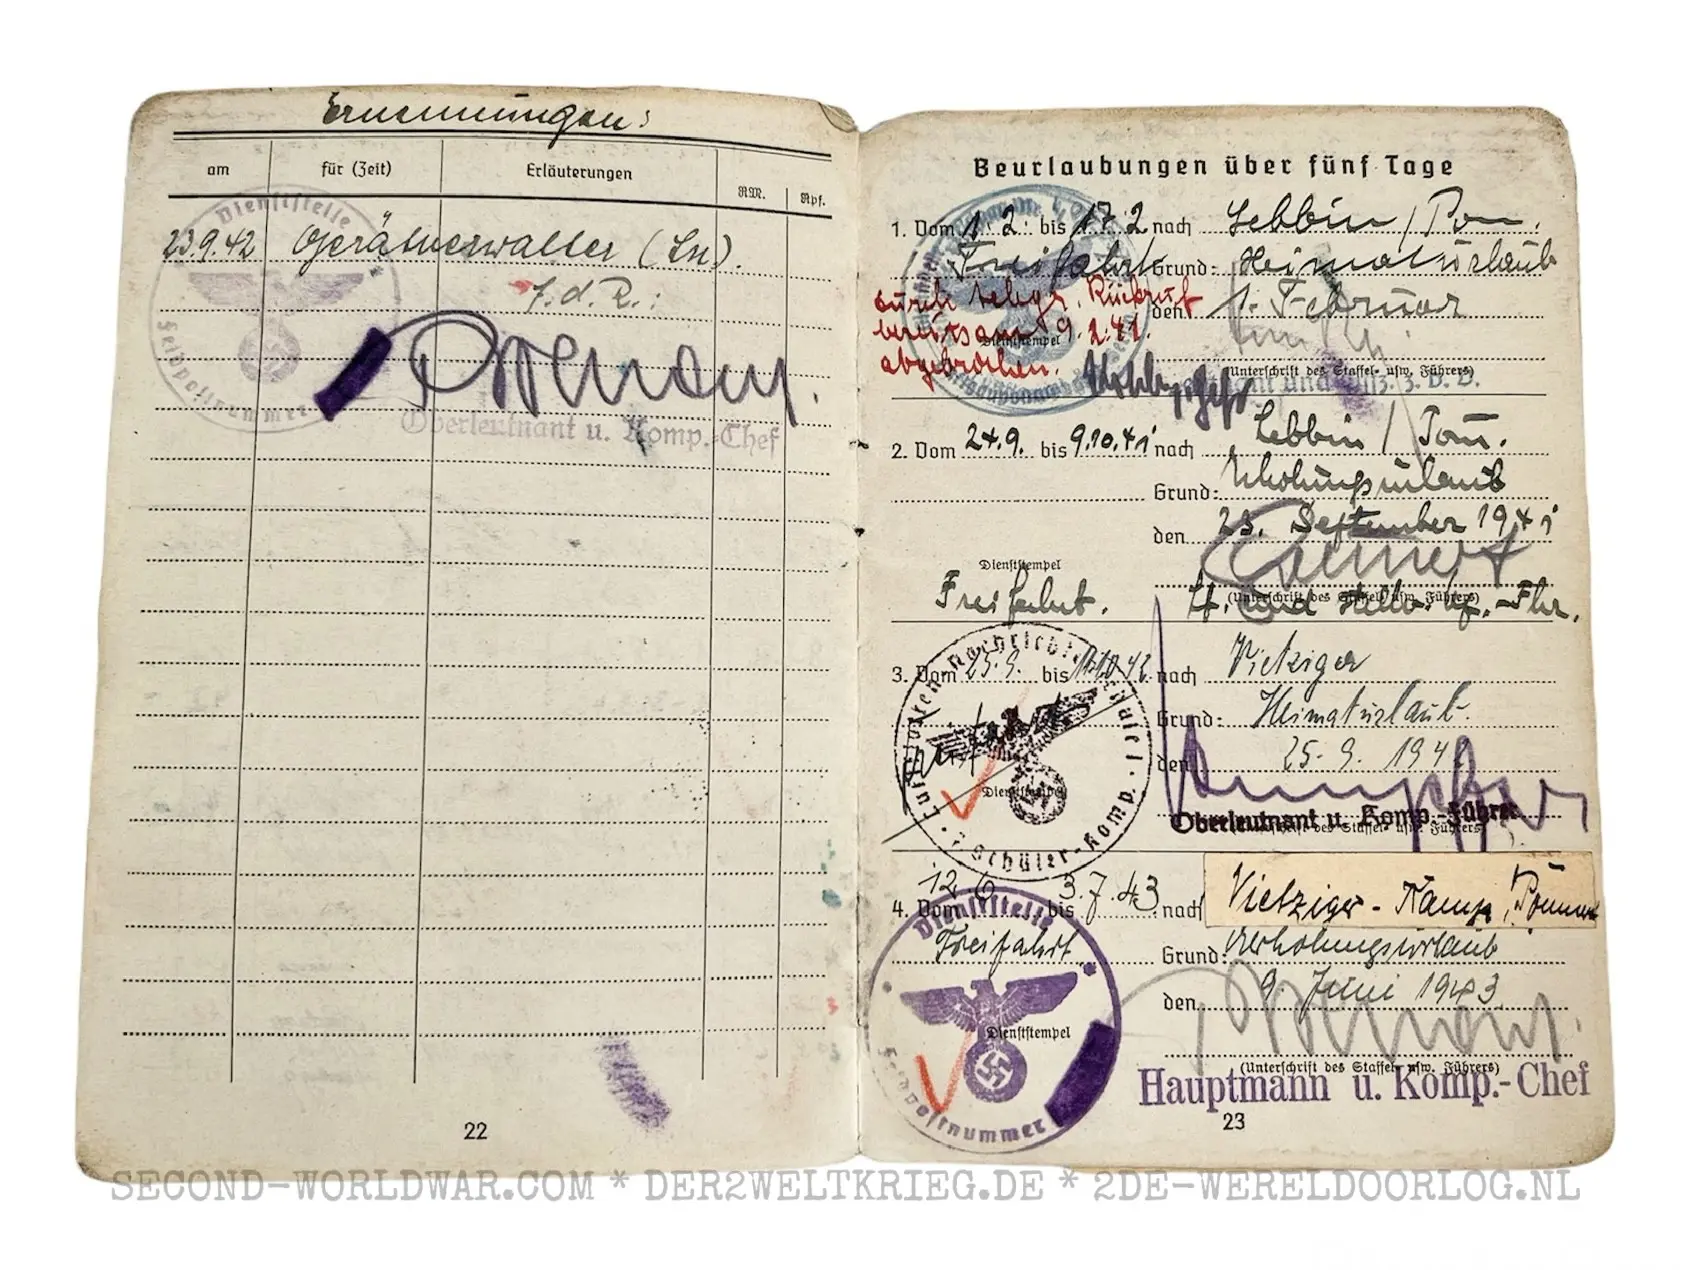 Ernennungen:
am für (Zeit) Erläuterungen RM. Rpf.
Dienststelle
23.9.42 Gerätverwalter (Ln).
F.d.R.:
Feldpostnummer
Oberleutnant u. Komp.-Chef
22
Beurlaubungen über fünf Tage
1. Vom 1.2. bis 17.2 nach Lebbin / Pom.
Freifahrt Grund: Heimaturlaub
durch telegr. Rückruf
den 1. Februar
bereits am 9.2.41.
Dienststempel
abgebrochen.
(Unterschrift des Staffel- usw. Führers)
2. Vom 24.9. bis 9.10.41 nach Lebbin / Pom.
Grund: Erholungsurlaub
den 23. September 1941
Dienststempel
(Unterschrift des Staffel- usw. Führers)
Freifahrt. Lt. und stellv. -Fhr.
3. Vom 25.9. bis nach Vietziger
Grund: Heimaturlaub.
den 25.9.1942
Dienststempel
Schüler-Komp.
Oberleutnant u. Komp.-Führer
(Unterschrift des Staffel- usw. Führers)
4. Vom 12.6 bis 3.7.43 nach Vietziger - Kamp, Pommern
Dienststelle
Freifahrt Grund: Erholungsurlaub
den 9. Juni 1943
Dienststempel
Feldpostnummer
(Unterschrift des Staffel- usw. Führers)
Hauptmann u. Komp.-Chef
23
SECOND-WORLDWAR.COM * DER2WELTKRIEG.DE * 2DE-WERELDOORLOG.NL